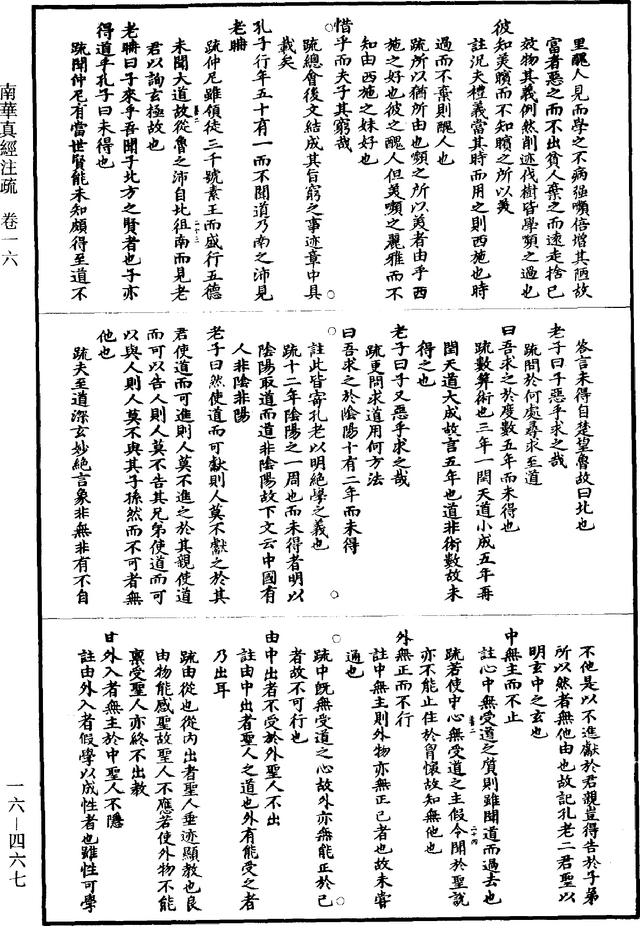 南華真經注疏　卷一六
一六—四六七
里醜人見而學之不病强嚬倍增其陋故
富者惡之而不出貧人棄之而遠走捨己
效物其義例然削迹伐樹皆學嚬之過也
彼知美矉而不知矉之所以美
註況夫禮義當其時而用之則西施也時
過而不棄則醜人也
疏所以猶所由也嚬之所以美者由乎西
施之好也彼之醜人但美嚬之麗雅而不
知由西施之姝好也
惜乎而夫子其窮哉
疏總會後文結成其旨窮之事迹章中具
載矣
孔子行年五十有一而不聞道乃南之沛見
老聃
疏仲尼雖領徒三千號素王而盛行五德
未聞大道故從魯之沛自北徂南而見老
君以詢玄極故也
老聃曰子來乎吾聞子北方之賢者也子亦
得道乎孔子曰未得也
疏聞仲尼有當世賢能未知頗得至道不
答言未得自楚望魯故曰北也
老子曰子惡乎求之哉
疏問於何處尋求至道
曰吾求之於度數五年而未得也
疏數算術也三年一閏天道小成五年再
閏天道大成故言五年也道非術數故未
得之也
老子曰子又惡乎求之哉
疏更問求道用何方法
曰吾求之於陰陽十有二年而未得
註此皆寄孔老以明絶學之義也
疏十二年陰陽之一周也而未得者明以
陰陽取道而道非陰陽故下文云中國有
人非陰非陽
老子曰然使道而可獻則人莫不獻之於其
君使道而可進則人莫不進之於其親使道
而可以告人則人莫不告其兄弟使道而可
以與人則人莫不與其子孫然而不可者無
他也
疏夫至道深玄妙絶言象非無非有不自
不他是以不進獻於君親豈得告於子弟
所以然者無他由也故記孔老二君聖以
明玄中之玄也
中無主而不止
註心中無受道之質則雖聞道而過去也
疏若使中心無受道之主假令聞於聖説
亦不能止住於胷懷故知無他也
外無正而不行
註中無主則外物亦無正己者也故未嘗
通也
疏中既無受道之心故外亦無能正於己
者故不可行也
由中出者不受於外聖人不出
註由中出者聖人之道也外有能受之者
乃出耳
疏由從也從内出者聖人垂迹顯教也良
由物能感聖故聖人不應若使外物不能
禀受聖人亦終不出教
由外入者無主於中聖人不隱
註由外入者假學以成性者也雖性可學